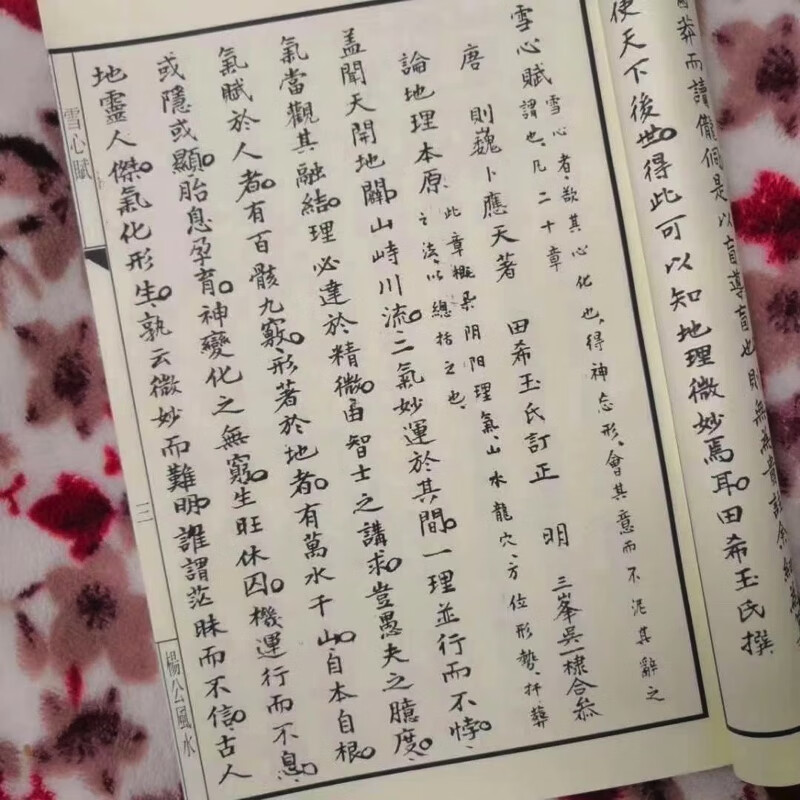 使天下後世得此可以知地理微妙焉耳。田希玉氏撰
雪心賦
雪心者、欲其心化也、得神忘形、會其意而不泥其辭之
謂也、凡二十章
唐 則巍卜應天著 田希玉氏訂正 明 三峯吳一棣合叅
論地理本原
此章概柔阴阳理氣、山水龍穴、方位形勢、扦葬
之法、以總括之也、
盖聞天開地闢、山峙川流。二氣妙運於其間。一理並行而不悖。
氣當觀其融結。理必達於精微。由智士之講求。豈愚夫之臆度。
氣賦於人者。有百骸九竅。形著於地者。有萬水千山。自本自根。
或隱或顯。胎息孕育。神變化之無窮。生旺休囚。機運行而不息。
地靈人傑。氣化形生。孰云微妙而難明。誰謂茫昧而不信。古人
雪心賦
三
楊公風水